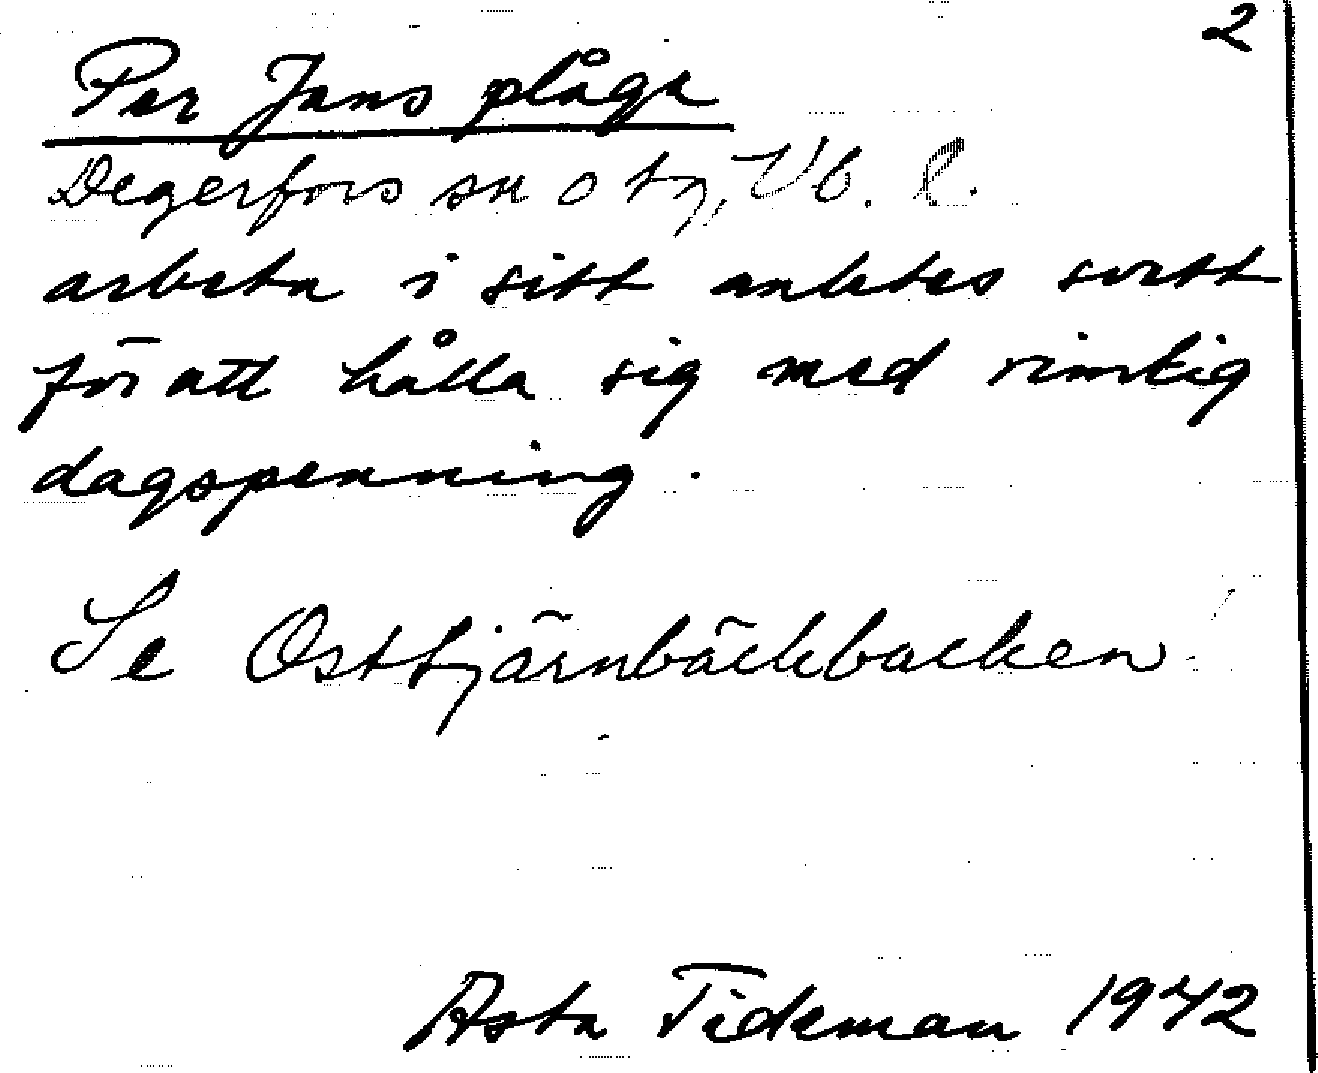 2
Per Jans plåga
Degerfors sn o tg, Vb. l.
arbeta i sitt anletes svett
för att hålla sig med rimlig
dagspenning.
Se Osttjärnbäckbacken
Asta Tideman 1942